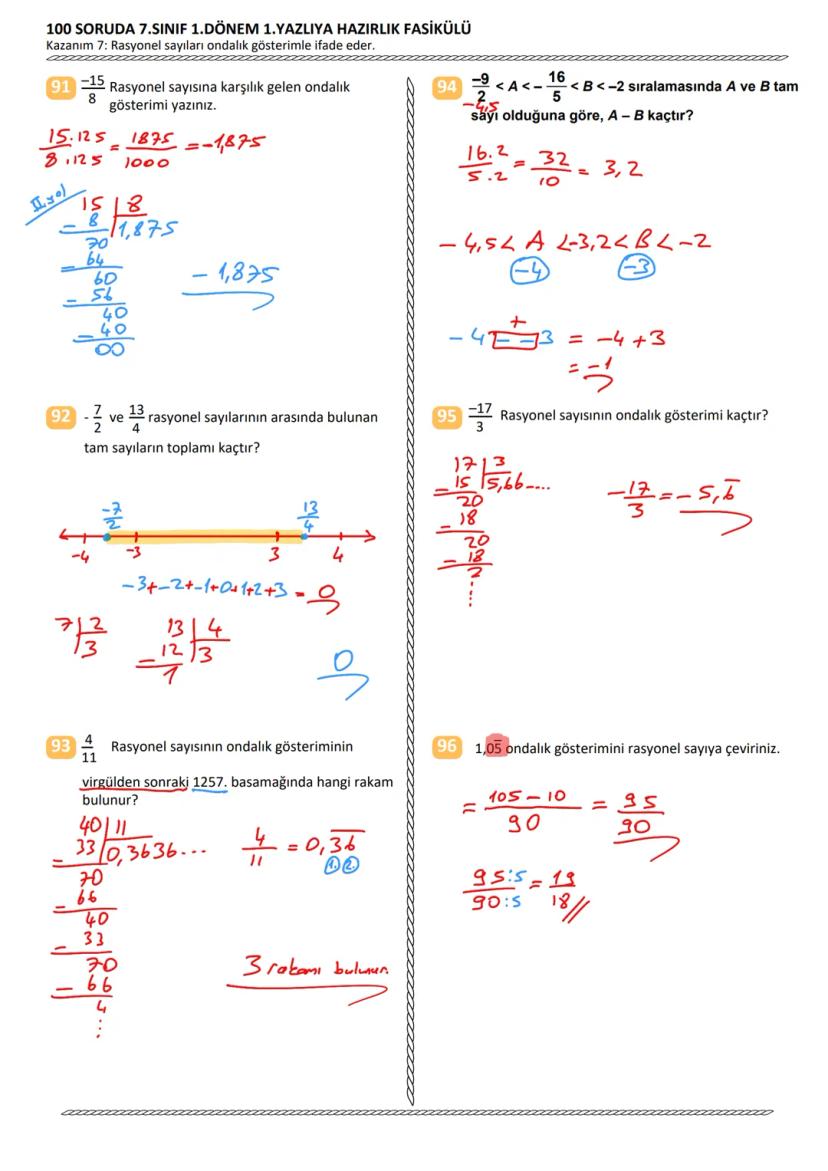 100 SORUDA 7.SINIF 1.DÖNEM 1.YAZLIYA HAZIRLIK FASİKÜLÜ
Kazanım 7: Rasyonel sayıları ondalık gösterimle ifade eder.
91 -15/8 Rasyonel sayısına karşılık gelen ondalık
gösterimi yazınız.
15.125/8.125 = 1875/1000 = -1,875
II.yol
15 | 8
- 8 | 1,875
70
- 64
60
- 56
40
- 40
00
- 1,875
92 -7/2 ve 13/4 rasyonel sayılarının arasında bulunan
tam sayıların toplamı kaçtır?
-7/2 13/4
-4 -3 3 4
-3+-2+-1+0+1+2+3 = 0
7 | 2
3
13 | 4
- 12 | 3
1
0
93 4/11 Rasyonel sayısının ondalık gösteriminin
virgülden sonraki 1257. basamağında hangi rakam
bulunur?
40 | 11
- 33 | 0,3636...
70
- 66
40
- 33
70
- 66
4
⋮
4/11 = 0,3̅6̅
1. 2.
3 rakamı bulunur.
94 -9/2 < A < - 16/5 < B < -2 sıralamasında A ve B tam
-4,5
sayı olduğuna göre, A – B kaçtır?
16.2/5.2 = 32/10 = 3,2
- 4,5 < A < -3,2 < B < -2
-4 -3
+
- 4 - - 3 = -4 + 3
= -1
95 -17/3 Rasyonel sayısının ondalık gösterimi kaçtır?
17 | 3
- 15 | 5,66....
20
- 18
20
- 18
2
⋮
-17/3 = - 5,6̅
96 1,05̅ ondalık gösterimini rasyonel sayıya çeviriniz.
= 105 - 10/90 = 95/90
95:5/90:5 = 19/18 //